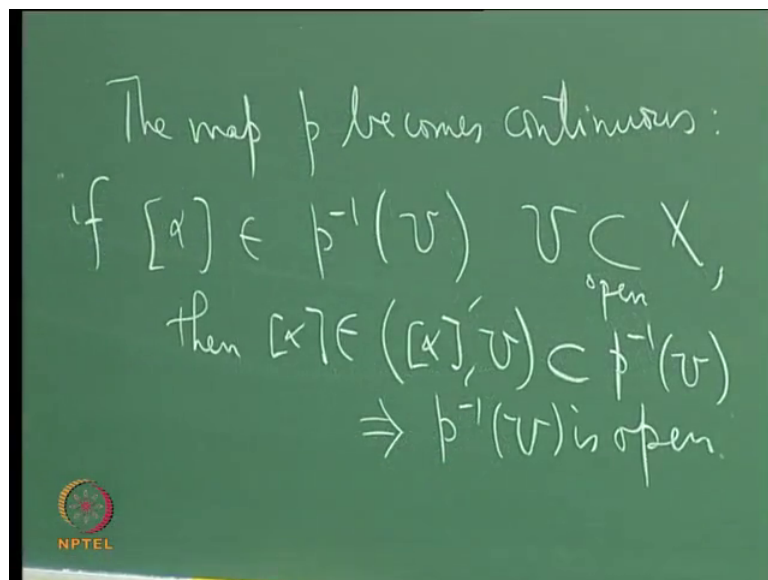 The map p becomes continuous:
if [α] ∈ p⁻¹(U) U ⊂ X,
open
then [α] ∈ ([α], U) ⊂ p⁻¹(U)
⇒ p⁻¹(U) is open.
NPTEL